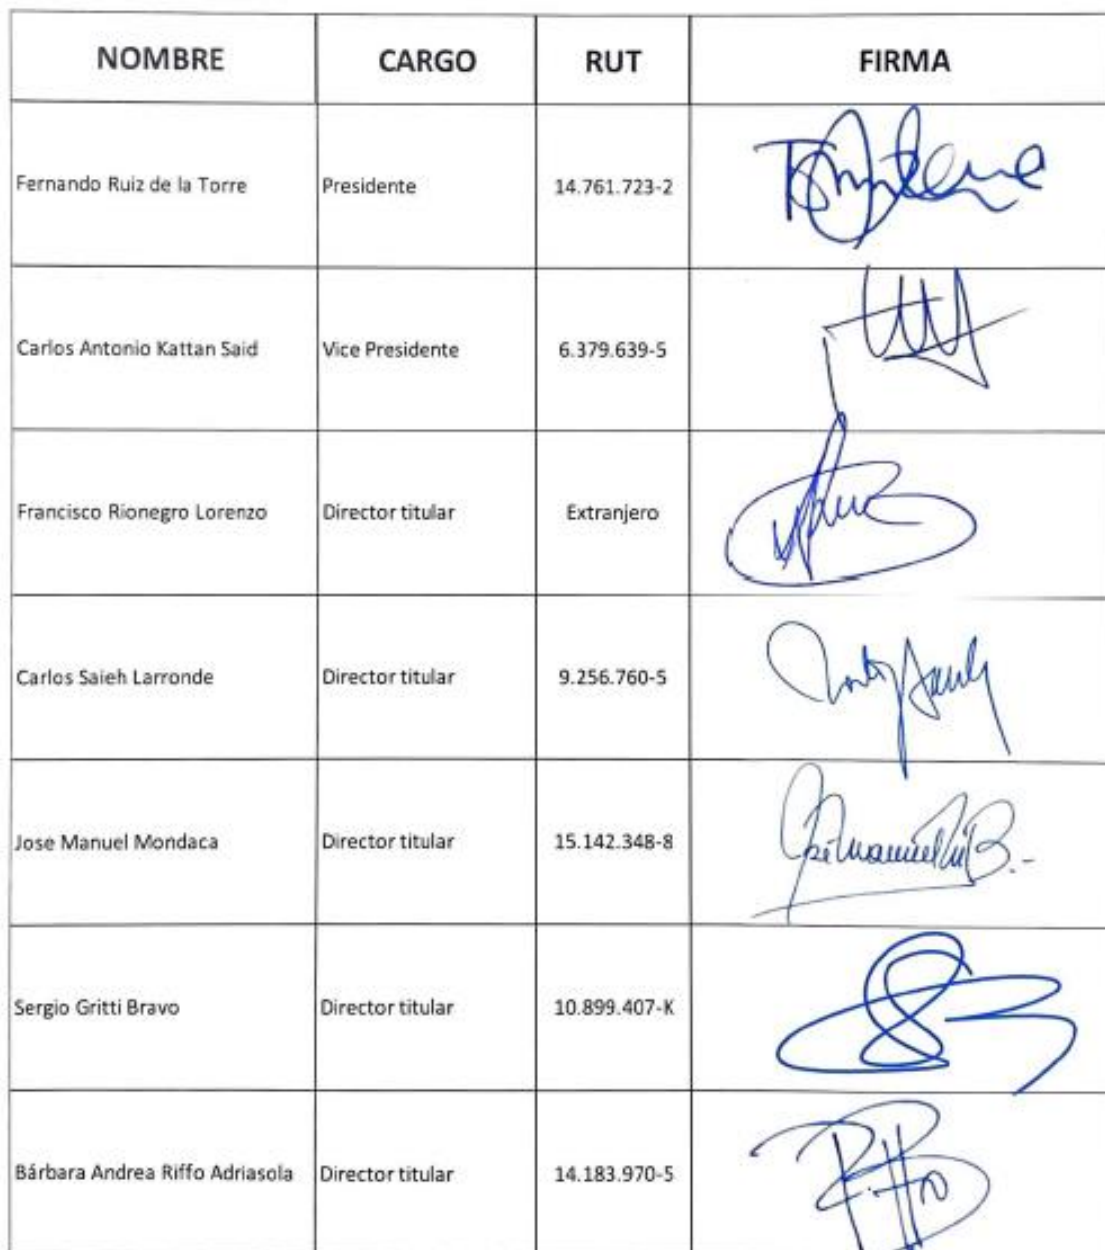 NOMBRE CARGO RUT FIRMA
Fernando Ruiz de la Torre Presidente 14.761.723-2
Carlos Antonio Kattan Said Vice Presidente 6.379.639-5
Francisco Rionegro Lorenzo Director titular Extranjero
Carlos Saieh Larronde Director titular 9.256.760-5
Jose Manuel Mondaca Director titular 15.142.348-8
Sergio Gritti Bravo Director titular 10.899.407-K
Bárbara Andrea Riffo Adriasola Director titular 14.183.970-5